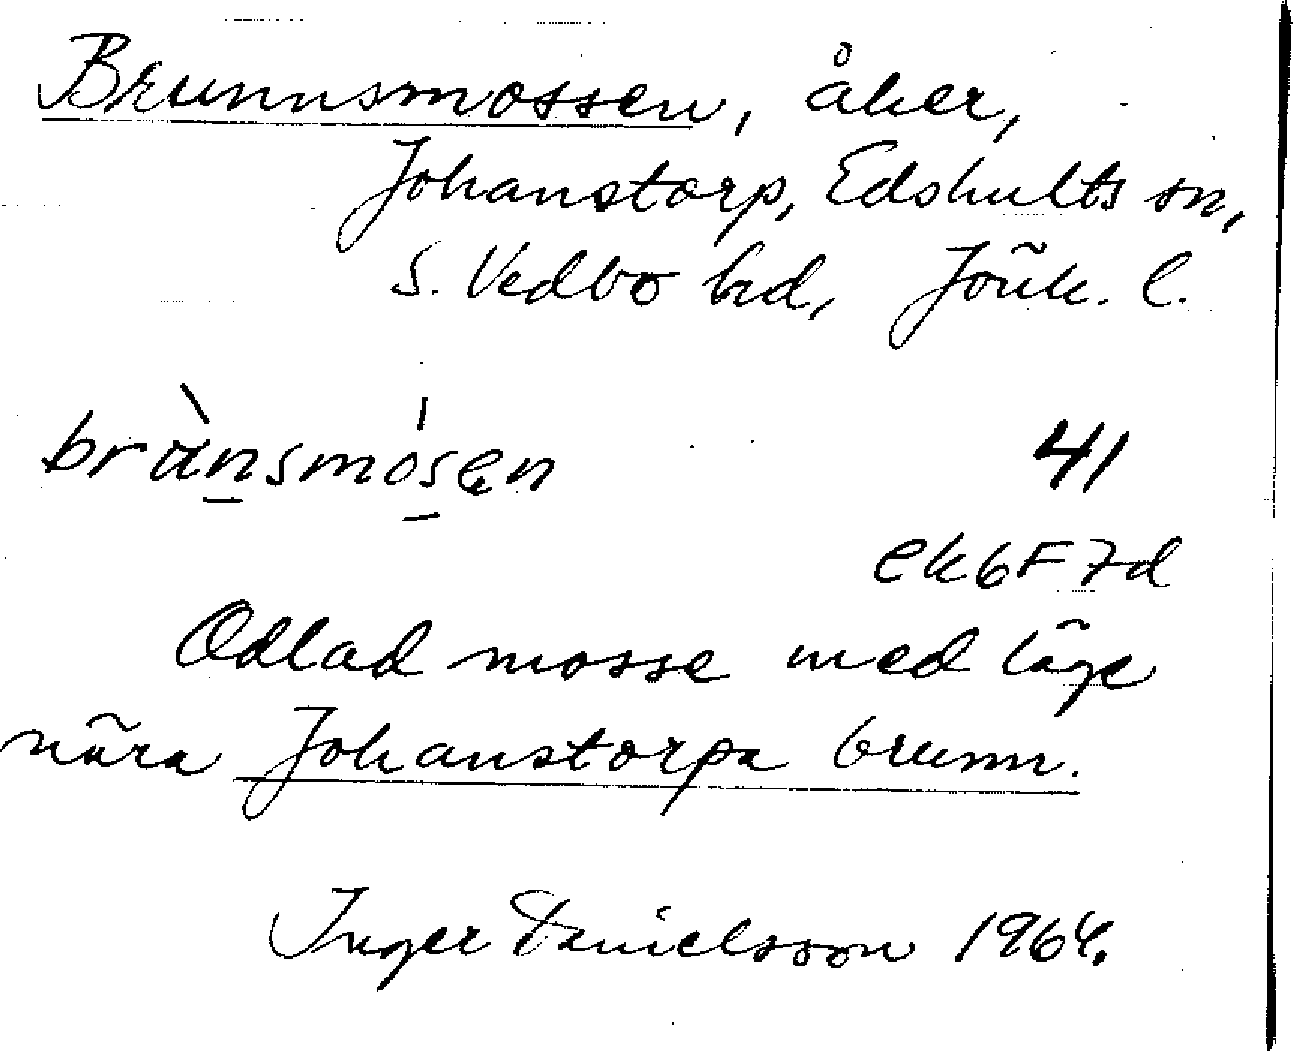 Brunnsmossen, åker,
Johanstorp, Edshults sn,
S. Vedbo hd, Jönk. l.
brànsmósen 41
ek 6F 7d
Odlad mosse med läge
nära Johanstorpa brunn.
Inger Danielsson 1964.